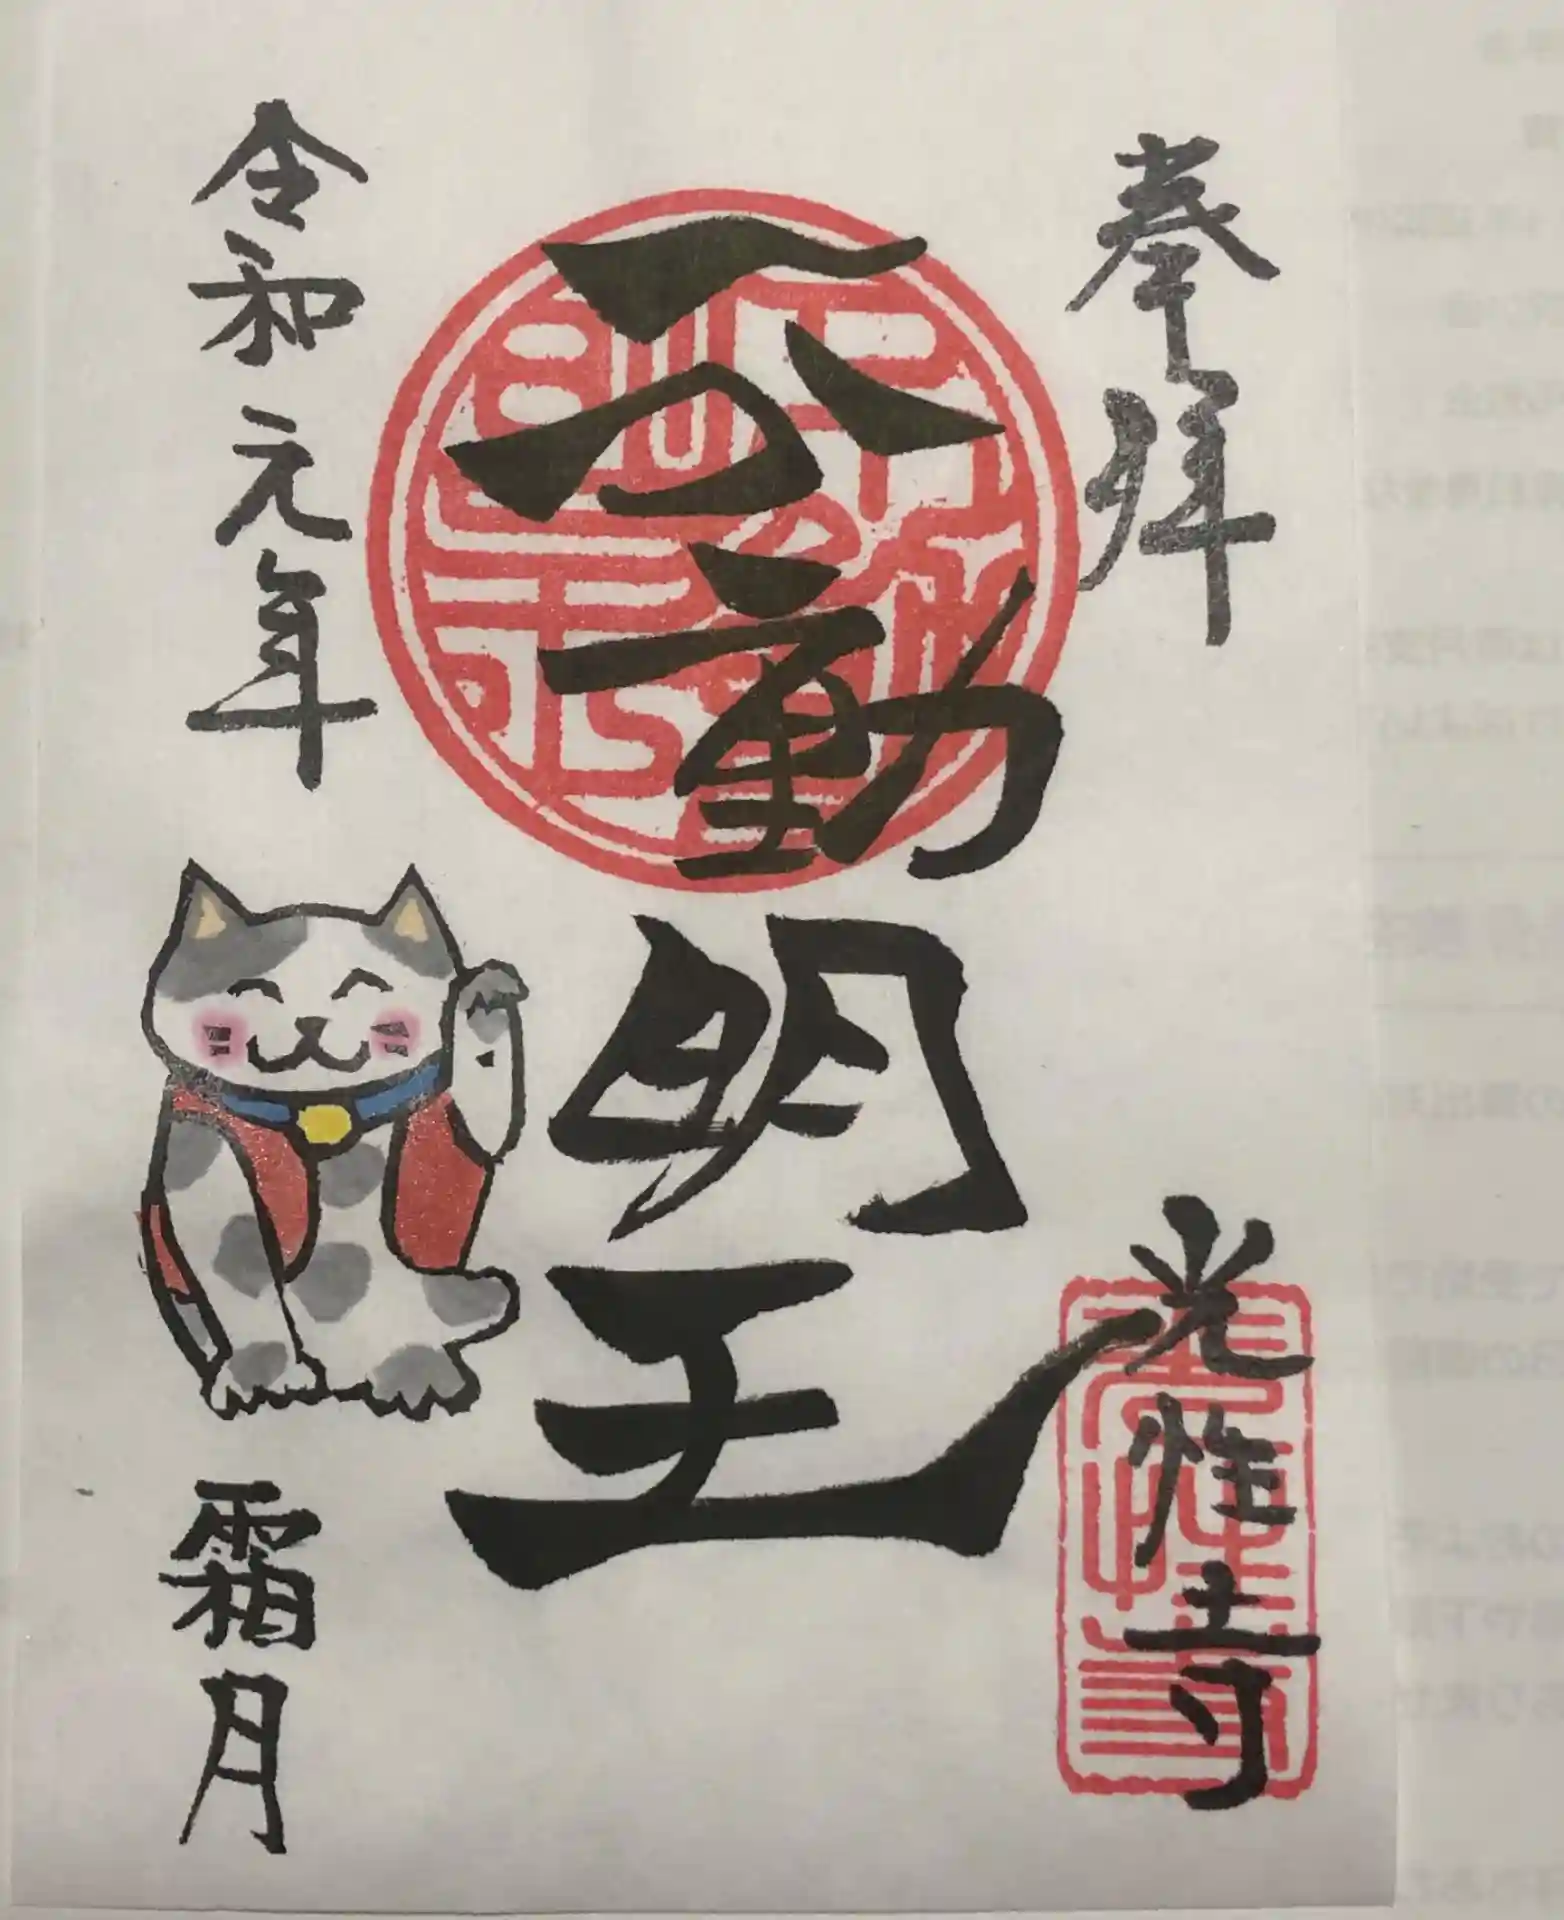 奉拝
不動明王
光性寺
令和元年
霜月